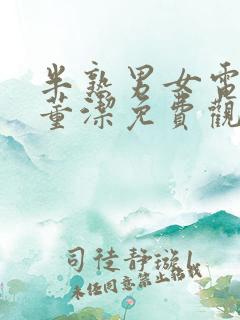 半熟男女電
董潔免費觀
司徒靜璇l
未经同意禁止转载